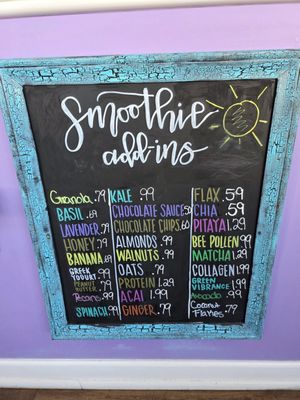 Smoothie
add-ins
Granola .79
BASIL .69
LAVENDER .79
HONEY .79
BANANA .69
GREEK YOGURT .99
PEANUT BUTTER .79
Pecans .99
SPINACH .99
KALE .99
CHOCOLATE SAUCE .50
CHOCOLATE CHIPS .60
ALMONDS .99
WALNUTS .99
OATS .79
PROTEIN 1.29
ACAI 1.99
GINGER .79
FLAX .59
CHIA .59
PITAYA 1.29
BEE POLLEN .99
MATCHA 1.29
COLLAGEN 1.99
GREEN VIBRANCE 1.99
Avocado .99
Coconut Flakes .79